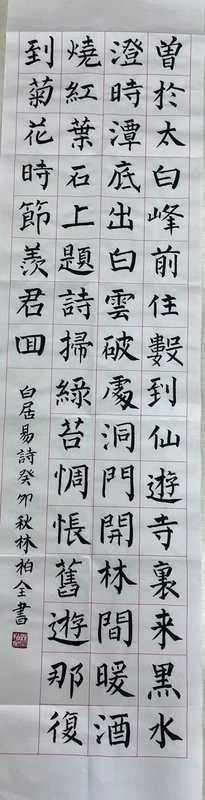 曾於太白峰前住數到仙遊寺裏来黑水
澄時潭底出白雲破處洞門開林間暖酒
燒紅葉石上題詩掃綠苔惆悵舊遊那復
到菊花時節羨君囬
白居易詩癸卯秋林柏全書